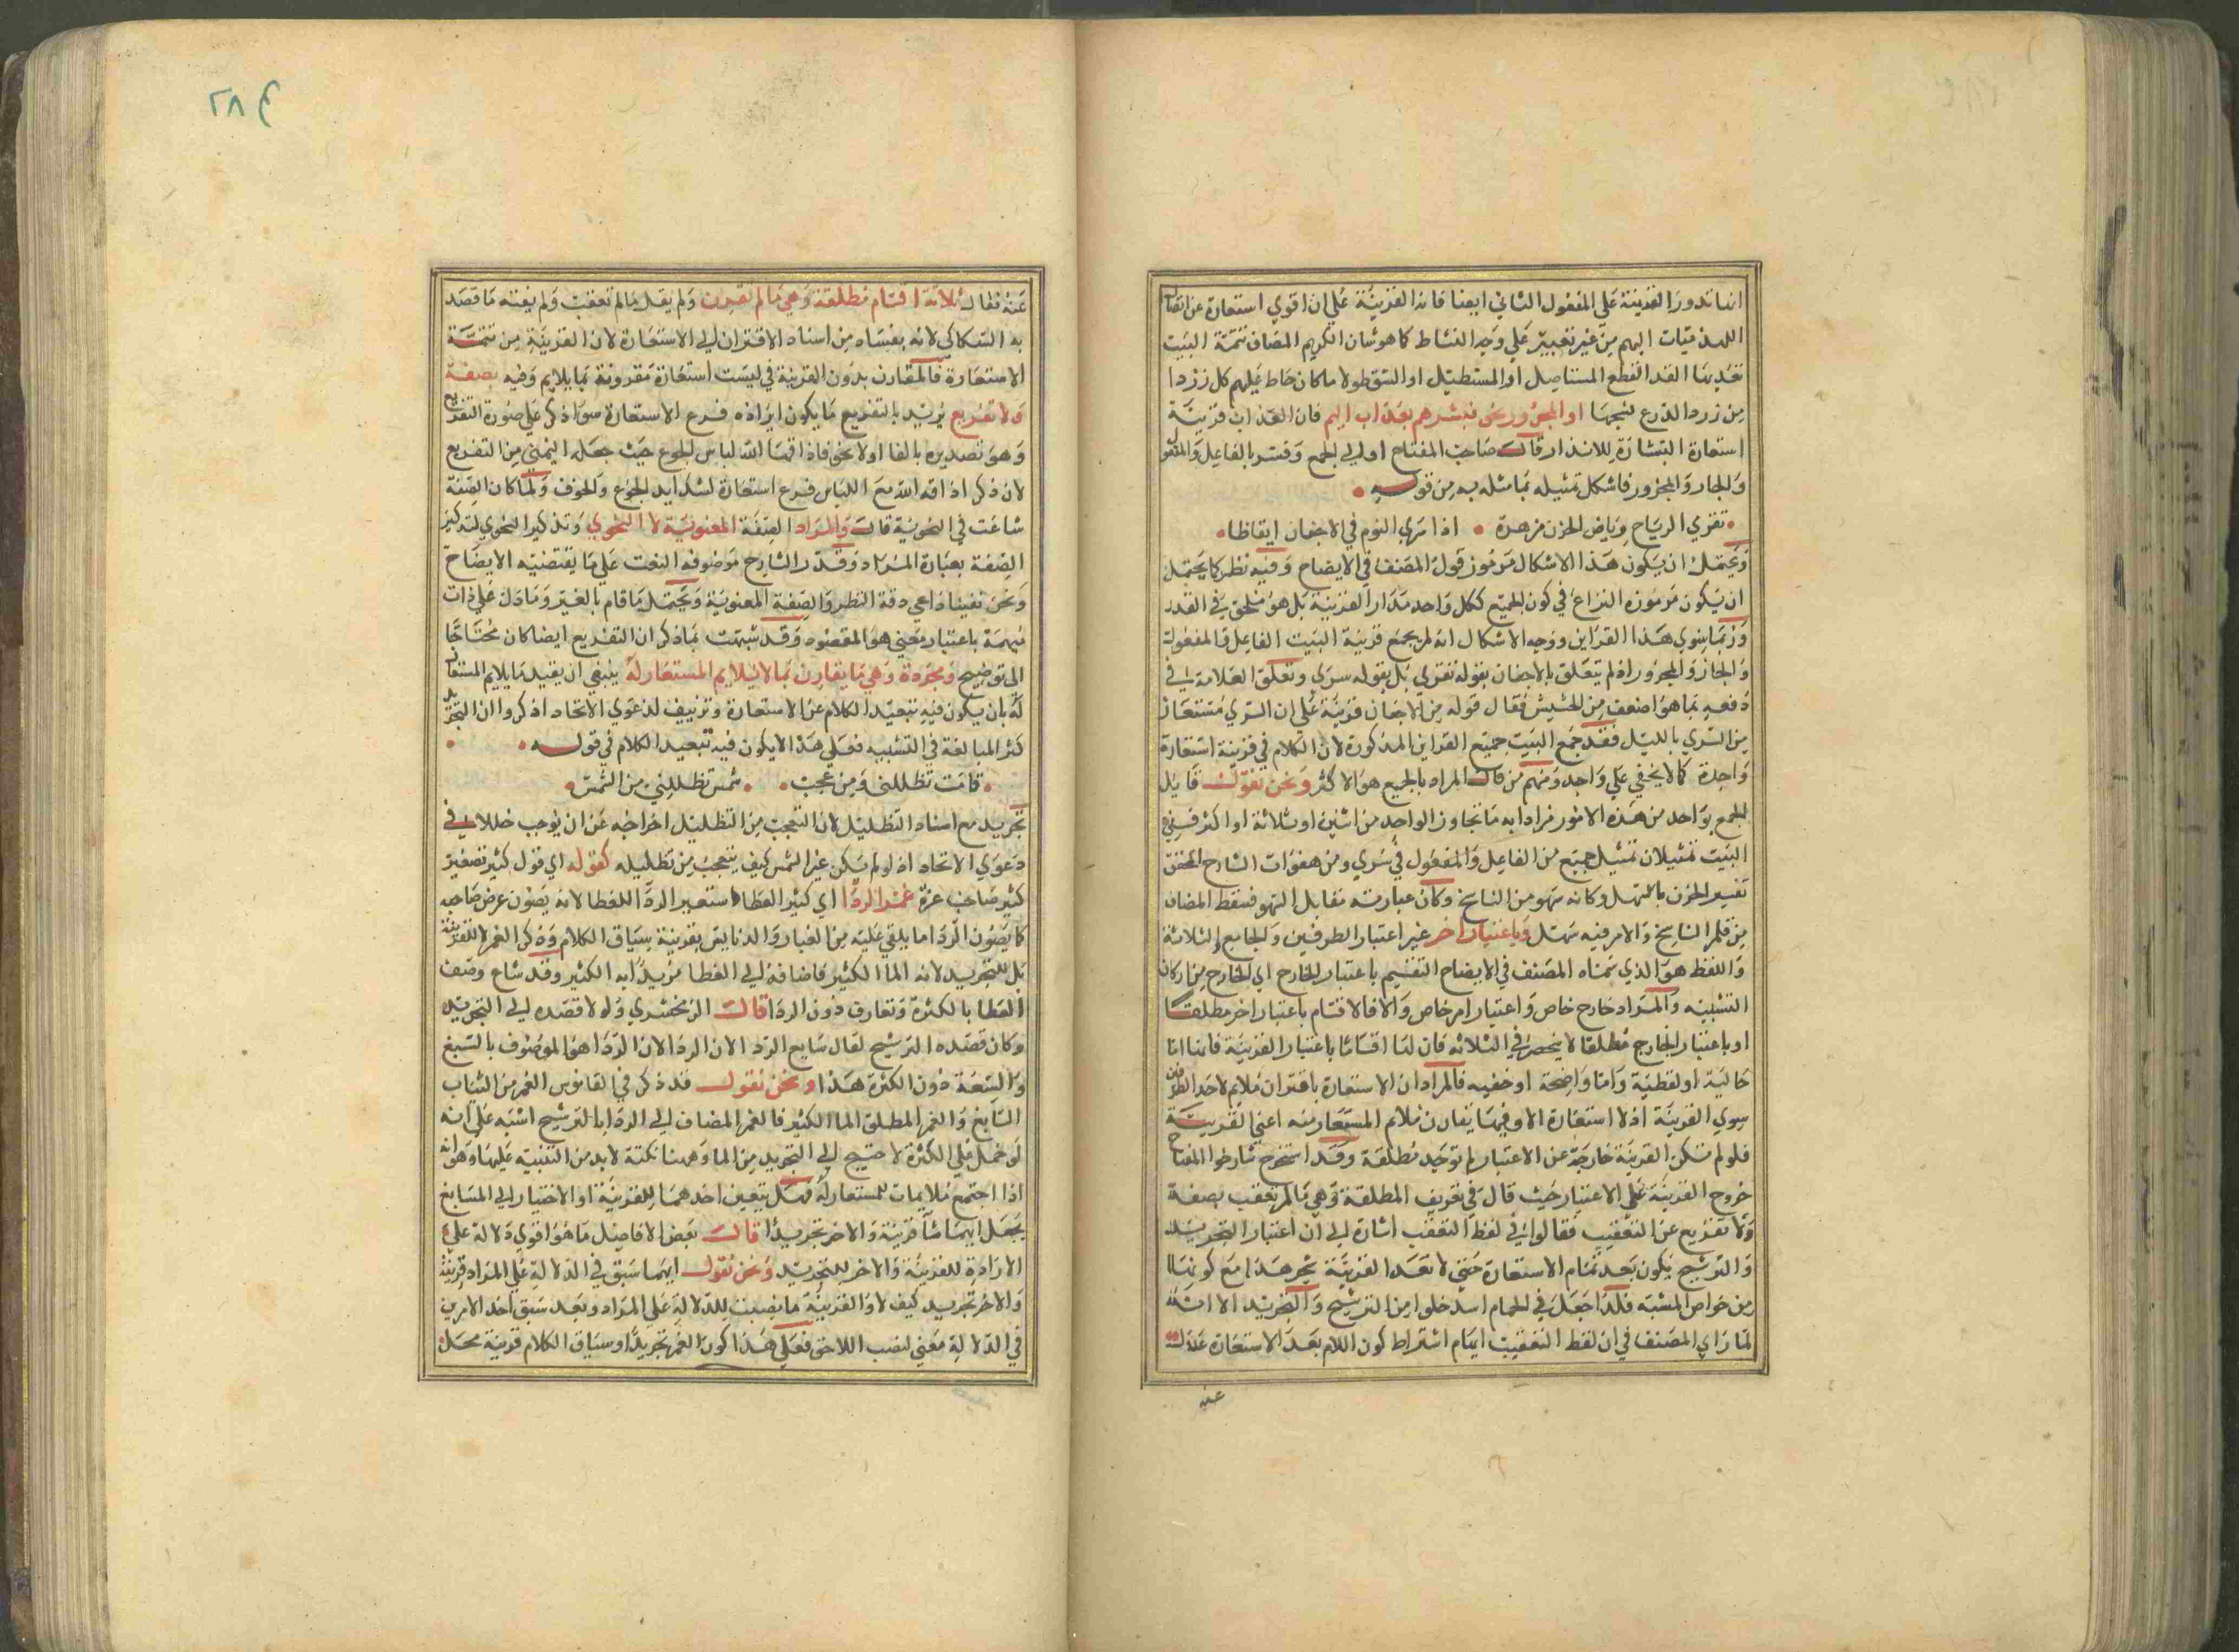 انما تدور القرينة على المفعول الثاني ايضا فانه القرينة على ان اقوي استعارة عن اتصال
اللهذميات اليهم من غير تغيير علي وجه النشاط كما هو شان الكريم المضاف تتمة البيت
نقد بها القد القطع المستاصل او المستطيل او الشق طولا ما كان خاط عليهم كل زراد
من زرد الدرع لنسجها او المجرور نحو فبشرهم بعذاب اليم فان العذاب قرينة
استعارة البشارة للانذار قال صاحب المفتاح او الي الجمع وفسر بالفاعل والمفعول
والجار والمجرور فاشكل تمثيله بما مثله به من قوله
تقري الرياح رياض الحزن مزهرة اذا سري النوم في الاجفان ايقاظا
ويحتمل ان يكون هذا الاشكال مرموز قول المصنف في الايضاح وفيه نظر كما يحتمل
ان يكون مرموزه النزاع في كون الجميع ككل واحد مدار القرينة بل هو ملحق في القدر
وربما سوي هذا القراين ووجه الاشكال انه لم يجمع قرينة البيت الفاعل والمفعول
والجار والمجرور اذ لم يتعلق بالاجفان بقوله تقري بل بقوله سري وتعلق العلامة في
دفعه بما هو اضعف من الحشيش فقال قوله من الاجفان قرينة علي ان السري مستعار
من السري بالليل فقد جمع البيت جميع القراين المذكورة لان الكلام في قرينة استعارة
واحدة كما لا يخفي علي واحد ومنهم من قال المراد بالجميع هو الاكثر ونحن نقول قايل
الجمع بواحد من هذه الامور مرادا به ما تجاوز الواحد من اثنين او ثلاثة او اكثر ففي
البيت تمثيلان تمثيل جميع من الفاعل والمفعول في سري ومن هفوات الشارح المحقق
تفسير الحزن بالسهل وكانه سهو من الناسخ وكان عبارته مقابل السهو فسقط المضاف
من قلم الناسخ والامر فيه سهل وباعتبار اخر غير اعتبار الطرفين والجامع والثلاثة
واللفظ هو الذي سماه المصنف في الايضاح التقسيم باعتبار الخارج اي الخارج من اركان
التشبيه والمراد خارج خاص واعتبار امر خاص والا فالاقسام باعتبار اخر مطلقا
او باعتبار الخارج مطلقا لا ينحصر في الثلاثه فان لها اقساما باعتبار القرينة فانها اما
حالية او لفظية واما واضحة او خفيه فالمراد ان الاستعارة باقتران ملايم لاحد الطرفين
سوي القرينة اذ لا استعارة الا وفيها يقارن ملايم المستعار منه اعني القرينة
فلو لم تكن القرينة خارجة عن الاعتبار لم توجد مطلقة وقد استخرج شارحوا المفتاح
خروج القرينة علي الاعتبار حيث قال في تعريف المطلقة وهي ما لم تعقب بصفة
ولا تفريع عن التعقيب فقالوا في لفظ التعقب اشارة الي ان اعتبار التجريد
والترشيح يكون بعد تمام الاستعارة حتي لا تعد القرينة تجريدا مع كونها
من خواص المشبه فلذا جعل في الحمام اسد خلوا من الترشيح والتجريد الا انه
لما راي المصنف في ان لفظ التعقيب ايهام اشتراط كون اللام بعد الاستعارة عدل
عنه
٢٨٤
عنه فقال ثلاثة اقسام مطلقة وهي ما لم تقترن ولم يقل ما لم تعقب ولم يفته ما قصد
به السكاكي لانه بفساه من اسناد الاقتران الي الاستعارة لان القرينة من تتمة
الاستعارة فالمقارن بدون القرينة في ليست استعارة مقرونة بما يلايم وفيه بصفة
ولا تفريع يريد بالتفريع ما يكون ايراده فرع الاستعارة سوا ذكر علي صورة التفريع
وهو تصديره بالفا او لا نحو فاذاقها الله لباس الجوع حيث جعله اليمني من التفريع
لان ذكر اذاقه الله مع اللباس فرع استعارة لشدايد الجوع والخوف ولما كان الصفة
شاعت في النحوية قال والمراد الصفة المعنوية لا النحوي وتذكير النحوي لتذكير
الصفة بعبارة المراد وقدر الشارح موصوفه النعت علي ما يقتضيه الايضاح
ونحن تبعنا داعي دقة النظر والصفة المعنوية ويحتمل ما قام بالغير وما دل علي ذات
مبهمة باعتبار معني هو المقصود وقد شبهت بما ذكر ان التفريع ايضا كان محتاجا
الي توضيح ومجردة وهي ما يقارن بما لا يلايم المستعار له ينبغي ان يقيد ما يلايم المستعار
له بان يكون فيه تبعيد الكلام عن الاستعارة وتزييف لدعوي الاتحاد اذ ذكروا ان التجريد
كثر المبالغة في التشبيه فعلي هذا لا يكون فيه تبعيد الكلام في قوله
قامت تظللني ومن عجب شمس تظللني من الشمس
تجريد مع اسناد التظليل لان التعجب من التظليل اخراجه عن ان يوجب خللا في
دعوي الاتحاد اذ لو لم يكن عين الشمس كيف يتعجب من تظليله كقوله اي قول كثير تصغير
كثير صاحب عزة غمر الردا اي كثير العطا استعير الردا للعطا لانه يصون عرض صاحبه
كما يصون الردا ما يلقي عليه من الغبار والدنايس بقرينة سياق الكلام وذكر الغمر لا للقرينة
بل للتجريد لانه الما الكثير فاضافة الي العطا مزيدا به الكثير وقد شاع وصف
العطا بالكثرة وتعارف دون الردا قال الزمخشري وله لا قصده الي التجريد
وكان قصده الترشيح لقال سابع الردا لان الردا الان الردا هو الموصوف بالسبغ
والسعة دون الكثرة هذا ونحن نقول قد ذكر في القاموس الغمر من الثياب
السابغ والغمر المطلق الما الكثير فالغمر المضاف الي الردا بالترشيح اشبه علي انه
لو حمل علي الكثرة لاحتيج الي التجريد من الما وههنا نكتة لا بد من التنبيه عليها وهو انه
اذا اجتمع ملايمات للمستعار له فهل يتعين احدهما للقرينة او الاختيار الي السامع
يجعل ايهما شا قرينة والاخر تجريدا قال بعض الافاضل ما هو اقوي دلالة علي
الارادة للقرينة والاخر للتجريد ونحن نقول ايهما سبق في الدلالة علي المراد قرينة
والاخر تجريد كيف لا والقرينة ما ينصب للدلالة علي المراد وبعد سبق احد الامرين
في الدلالة لا معني لنصب اللاحق فعلي هذا كون الغمر تجريدا وسياق الكلام قرينة محل